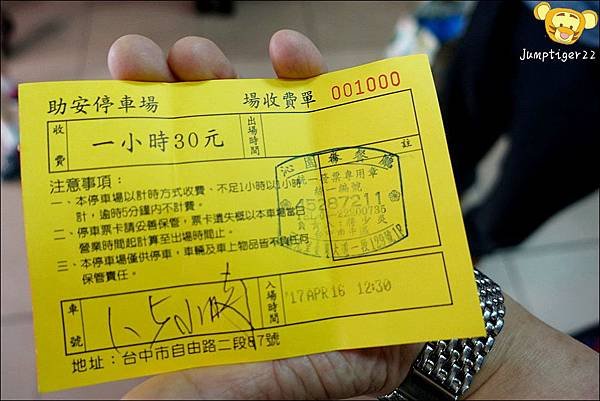 Jumptiger22
助安停車場 場收費單 001000
收費 一小時30元 出場時間 註
注意事項：
一、本停車場以計時方式收費、不足1小時以1小時
計，逾時5分鐘內不計費。
二、停車票卡請妥善保管，票卡遺失概以本車場當日
營業時間起計算至出場時間止。
三、本停車場僅供停車，車輛及車上物品皆不負任何
保管責任。
沁園春餐廳
統一發票專用章
統一編號
45287211
車號 入場時間 '17 APR 16 12:30
地址：台中市自由路二段87號